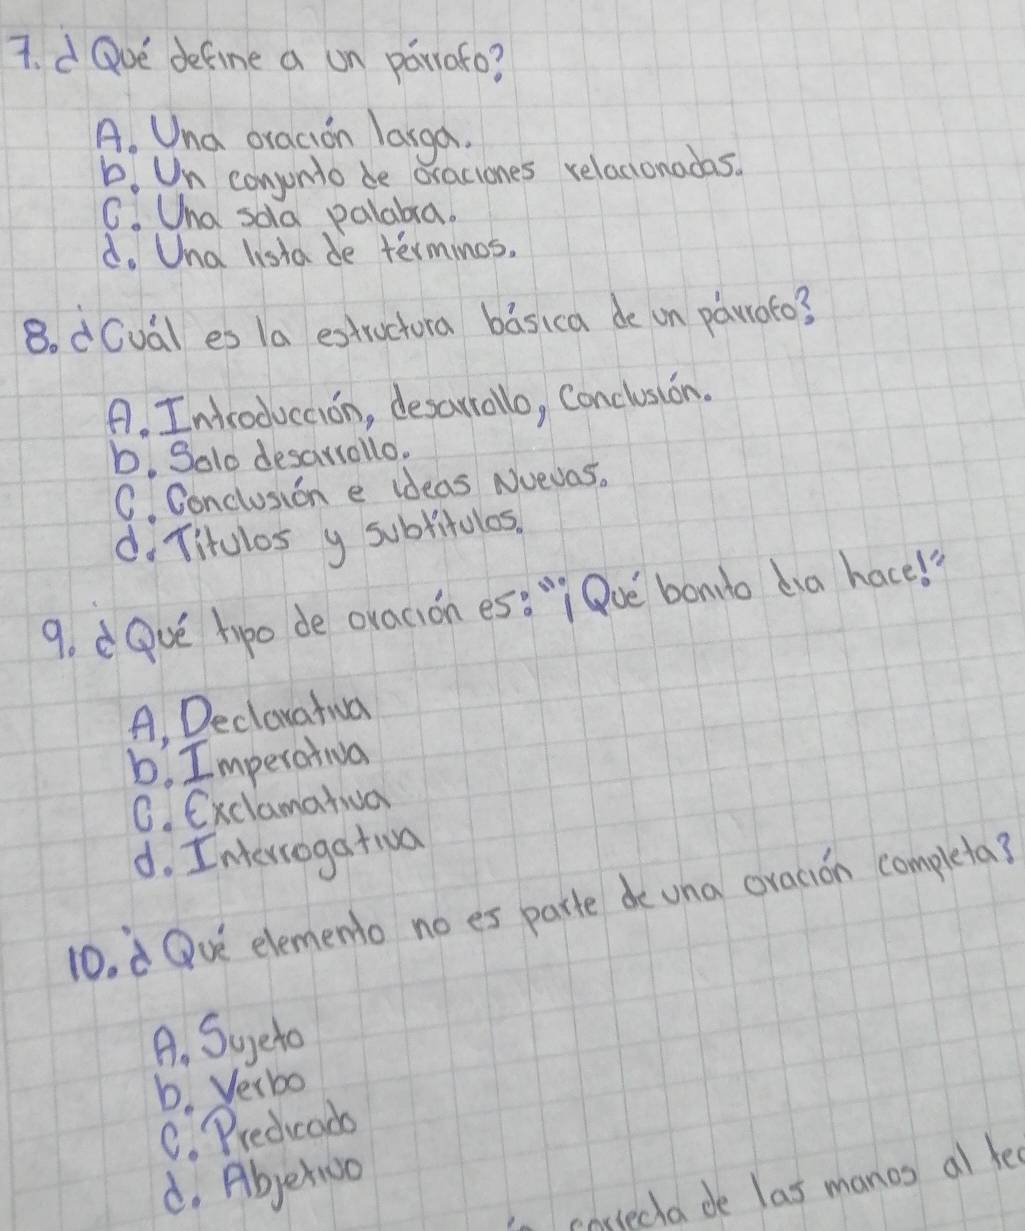 7. ¿Qué define a un párrafo?
A. Una oración larga.
b. Un conjunto de oraciones relacionadas.
C. Una sola palabra.
d. Una lista de términos.
8. ¿Cuál es la estructura básica de un párrafo?
A. Introducción, desarrollo, Conclusión.
b. Solo desarrollo.
C. Conclusión e ideas Nuevas.
d. Titulos y subtítulos.
9. ¿Qué tipo de oración es: "¡Qué bonito dia hace!"
A. Declarativa
b. Imperativa
C. Exclamativa
d. Interrogativa
10. ¿Qué elemento no es parte de una oración completa?
A. Sujeto
b. Verbo
C. Predicado
d. Abjetivo
correcta de las manos al